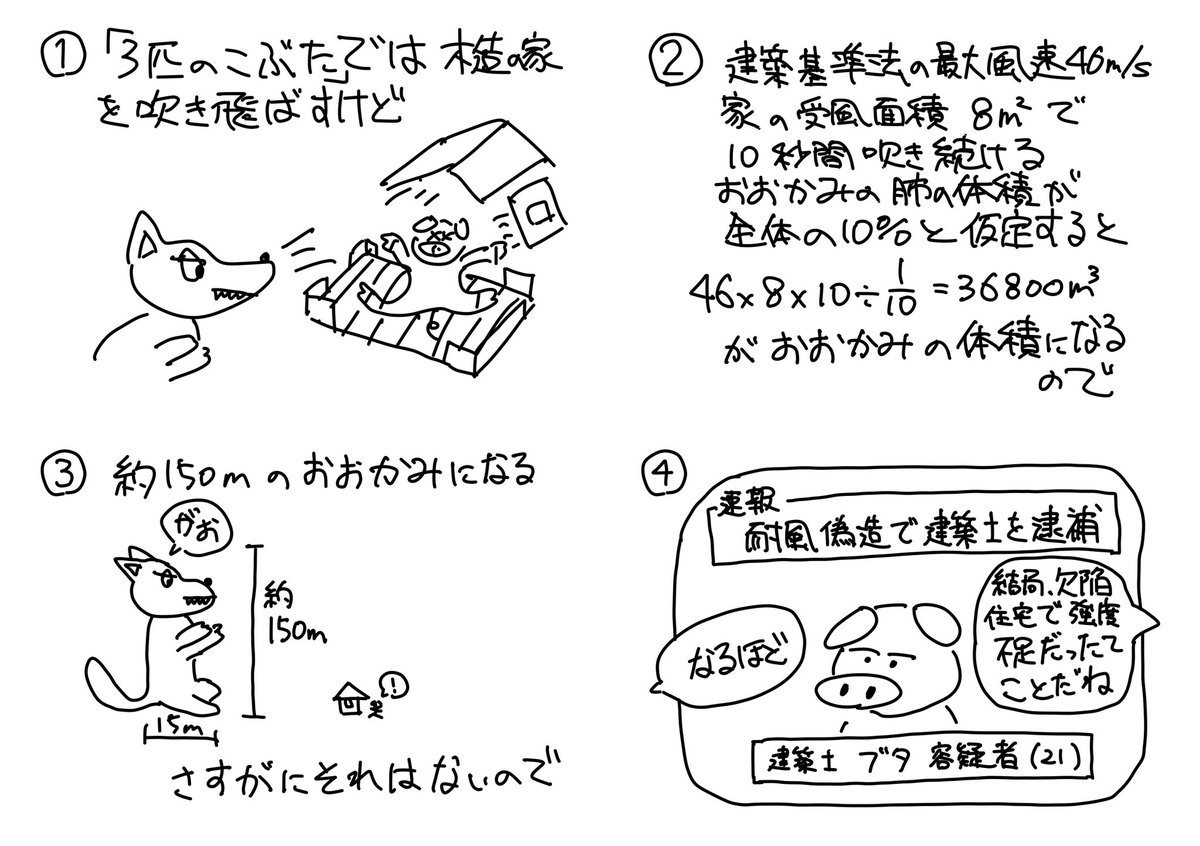 ① 「3匹のこぶた」では 木造の家
を吹き飛ばすけど
② 建築基準法の最大風速46m/s
家の受風面積 8m²で
10秒間吹き続ける
おおかみの肺の体積が
全体の10%と仮定すると
46×8×10÷1/10=36800m³
がおおかみの体積になる
ので
③ 約150mのおおかみになる
がお
約
150m
!
15m
さすがにそれはないので
④
速報
耐風偽造で建築士を逮捕
結局、欠陥
住宅で強度
不足だったて
ことだね
なるほど
建築士 ブタ 容疑者(21)